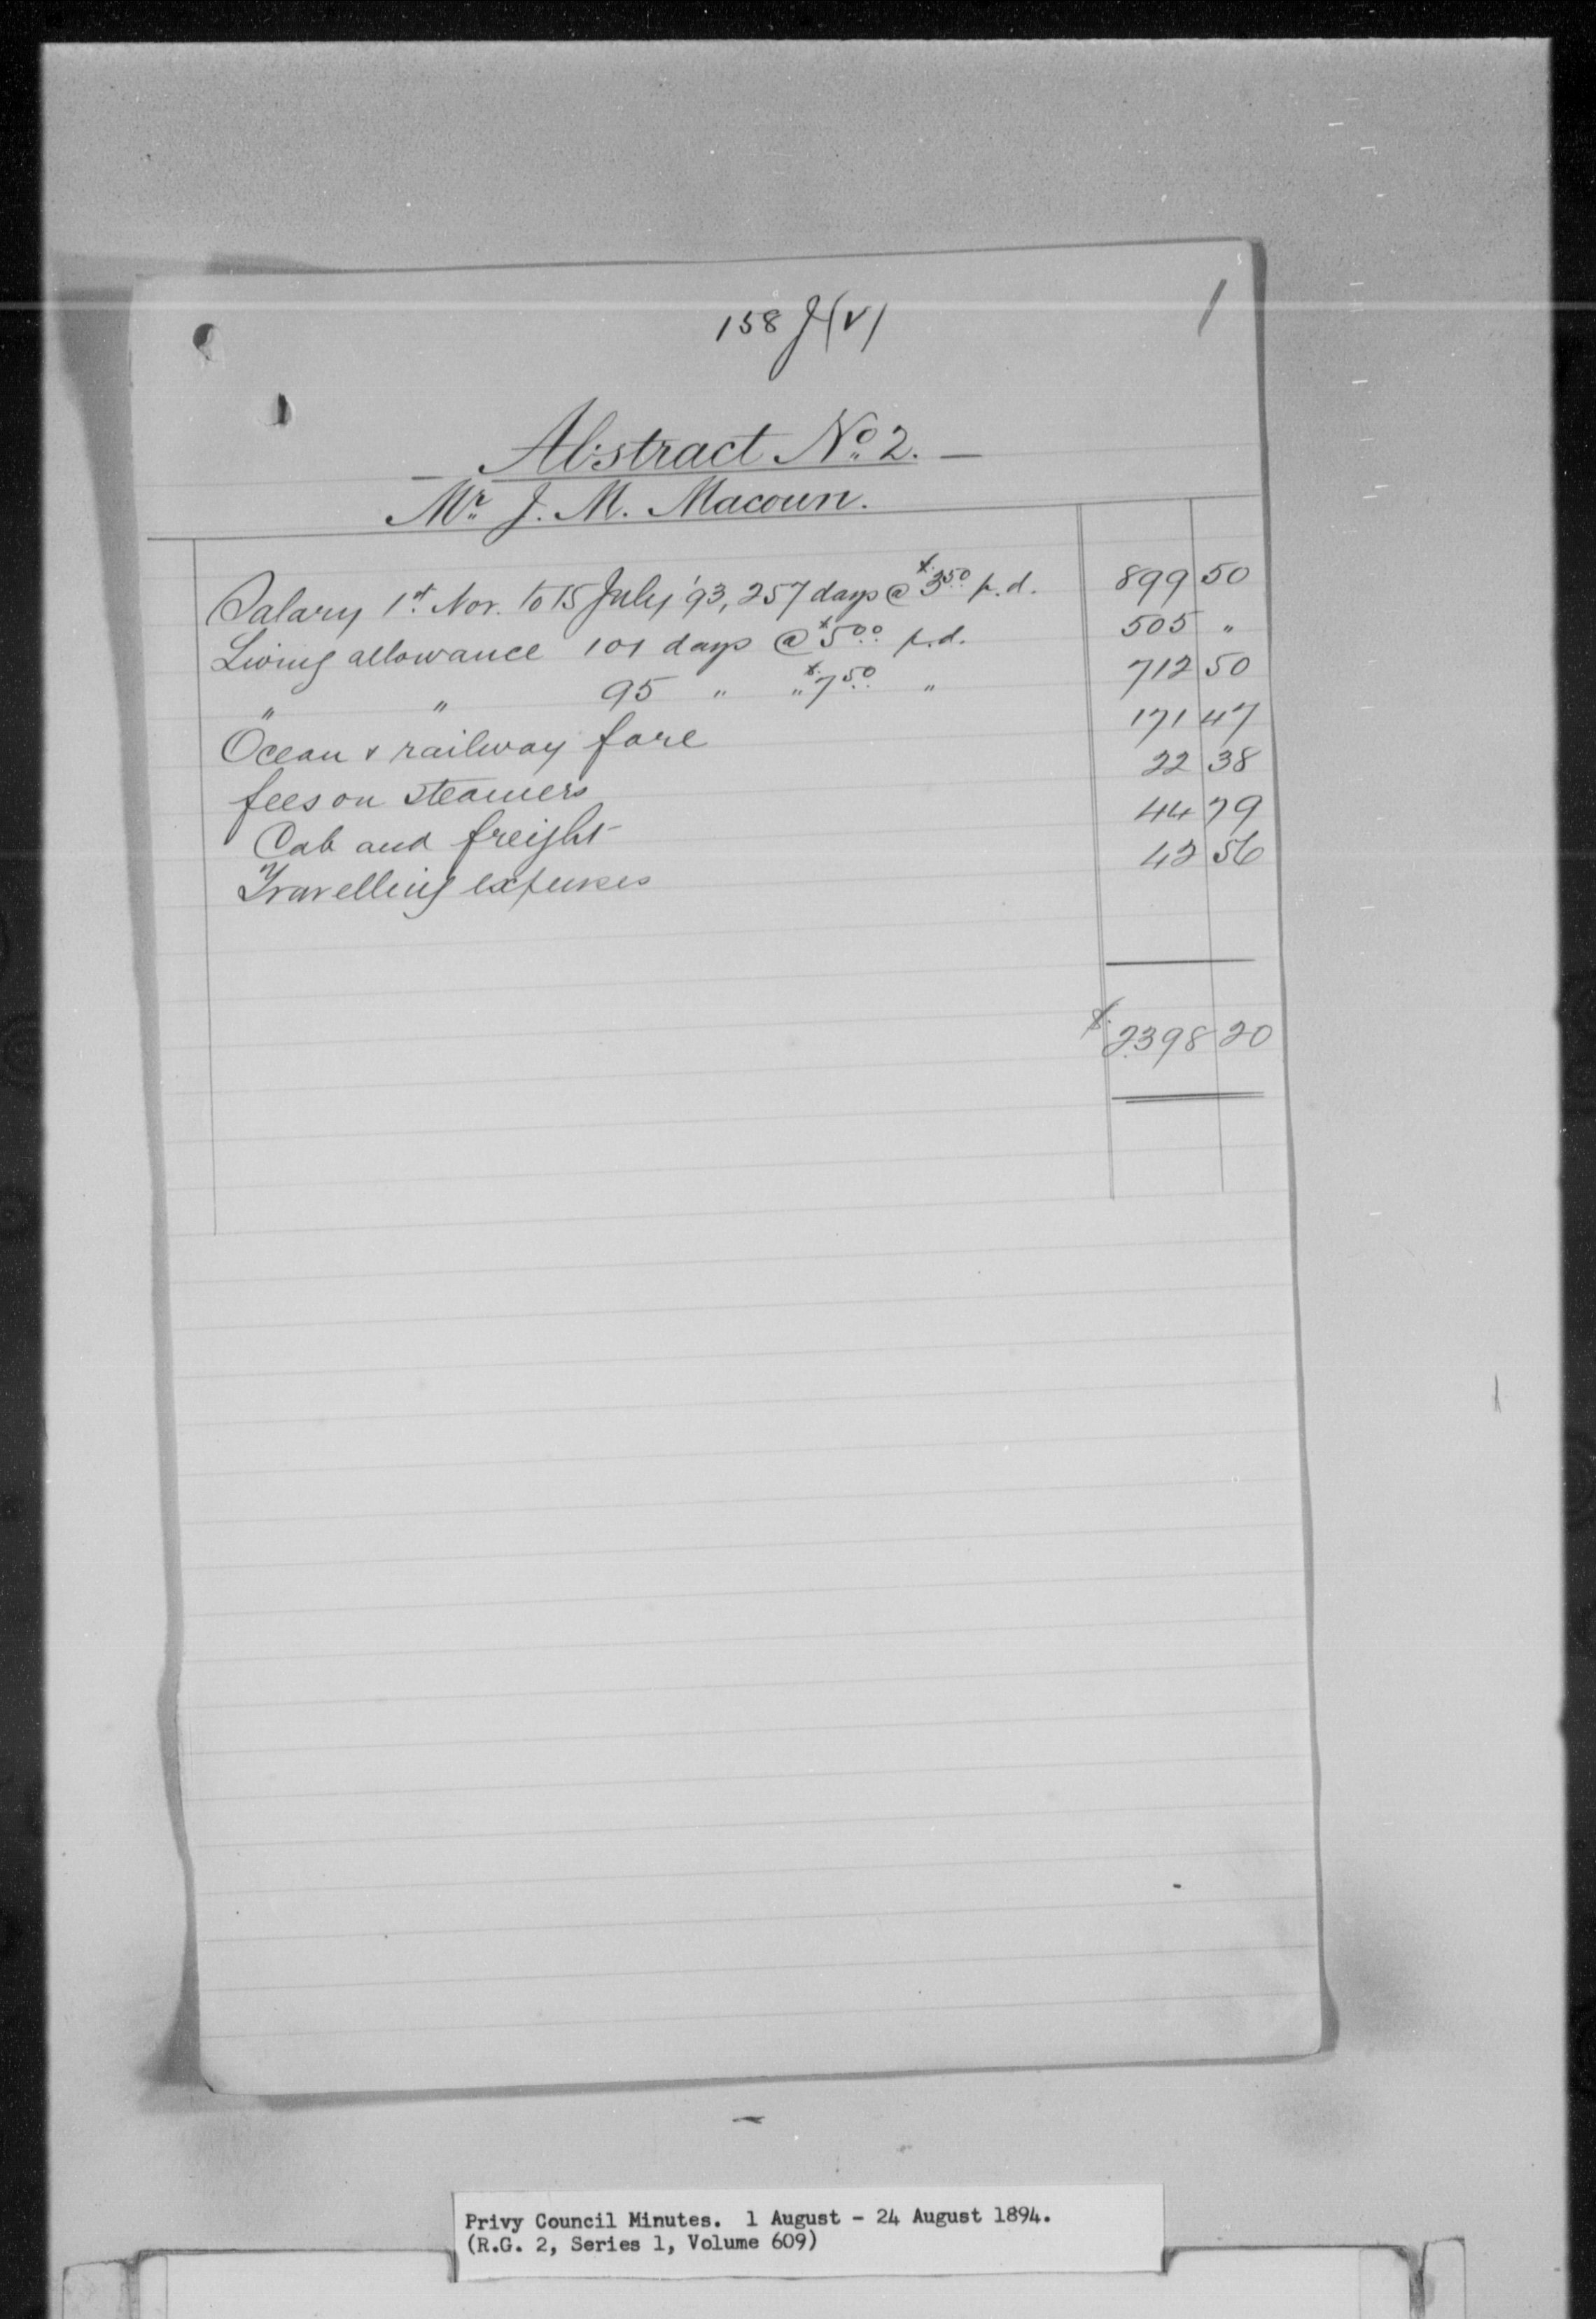 158 J(V)
1
Abstract No. 2. —
Mr. J. M. Macoun.
Salary 1st Nov. to 15 July '93, 257 days @ $3.50 p.d. 899 50
Living allowance 101 days @ $5.00 p.d. 505 "
" " 95 " " $7.50 " 712 50
Ocean & railway fare 171 47
fees on steamers 22 38
Cab and freight 44 79
Travelling expenses 42 56
$2398 20
Privy Council Minutes. 1 August - 24 August 1894.
(R.G. 2, Series 1, Volume 609)